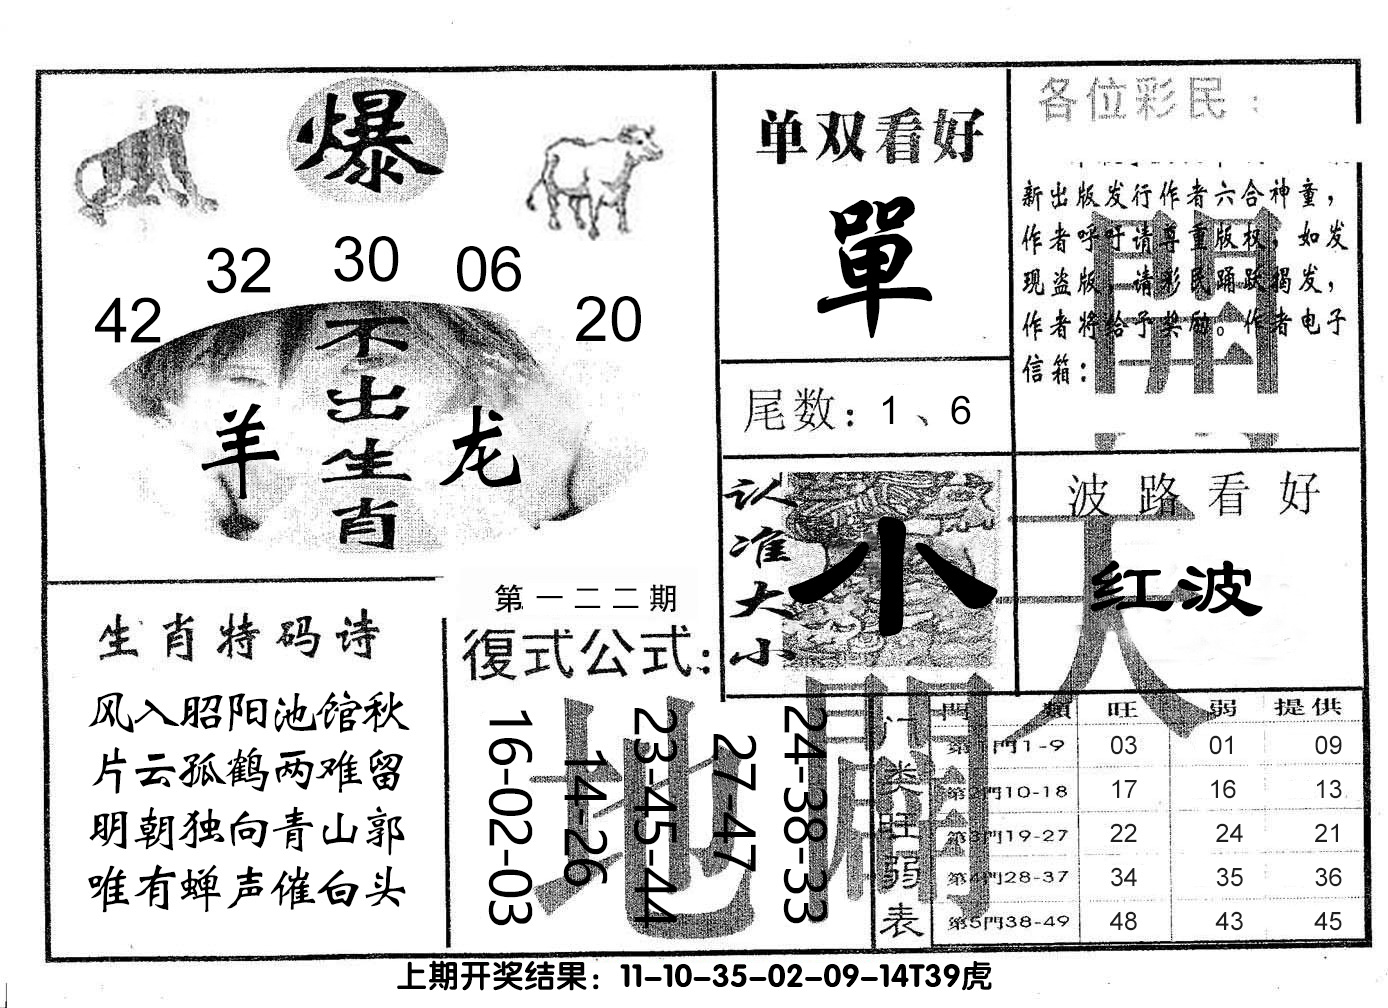 爆
32 30 06
42 20
不出生肖
羊 龙
单双看好
單
尾数：1、6
各位彩民：
新出版发行作者六合神童，
作者呼吁请尊重版权，如发
现盗版，请彩民踊跃揭发，
作者将给予奖励。作者电子
信箱：
認准大小
小
波路看好
红波
生肖特码诗
风入昭阳池馆秋
片云孤鹤两难留
明朝独向青山郭
唯有蝉声催白头
第一二二期
復式公式：
16-02-03
14-26
23-45-44
27-47
24-38-33
天地開
门类旺弱表
門類 旺 弱 提供
第1門1-9 03 01 09
第2門10-18 17 16 13
第3門19-27 22 24 21
第4門28-37 34 35 36
第5門38-49 48 43 45
上期开奖结果：11-10-35-02-09-14T39虎